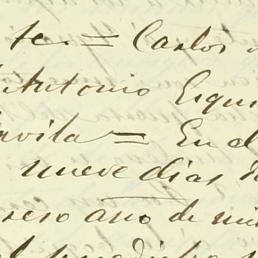 te = Carlos
Antonio Esqui
avila = En el
nueve dias d
rero año de mil